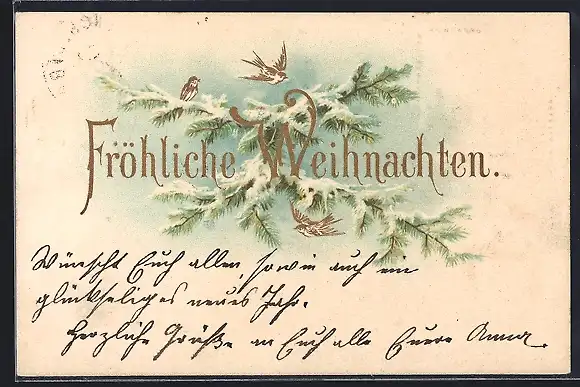 Fröhliche Weihnachten.
Wünscht Euch allen, sowie auch ein
glückseliges neues Jahr.
Herzliche Grüße an Euch alle Euere Anna.